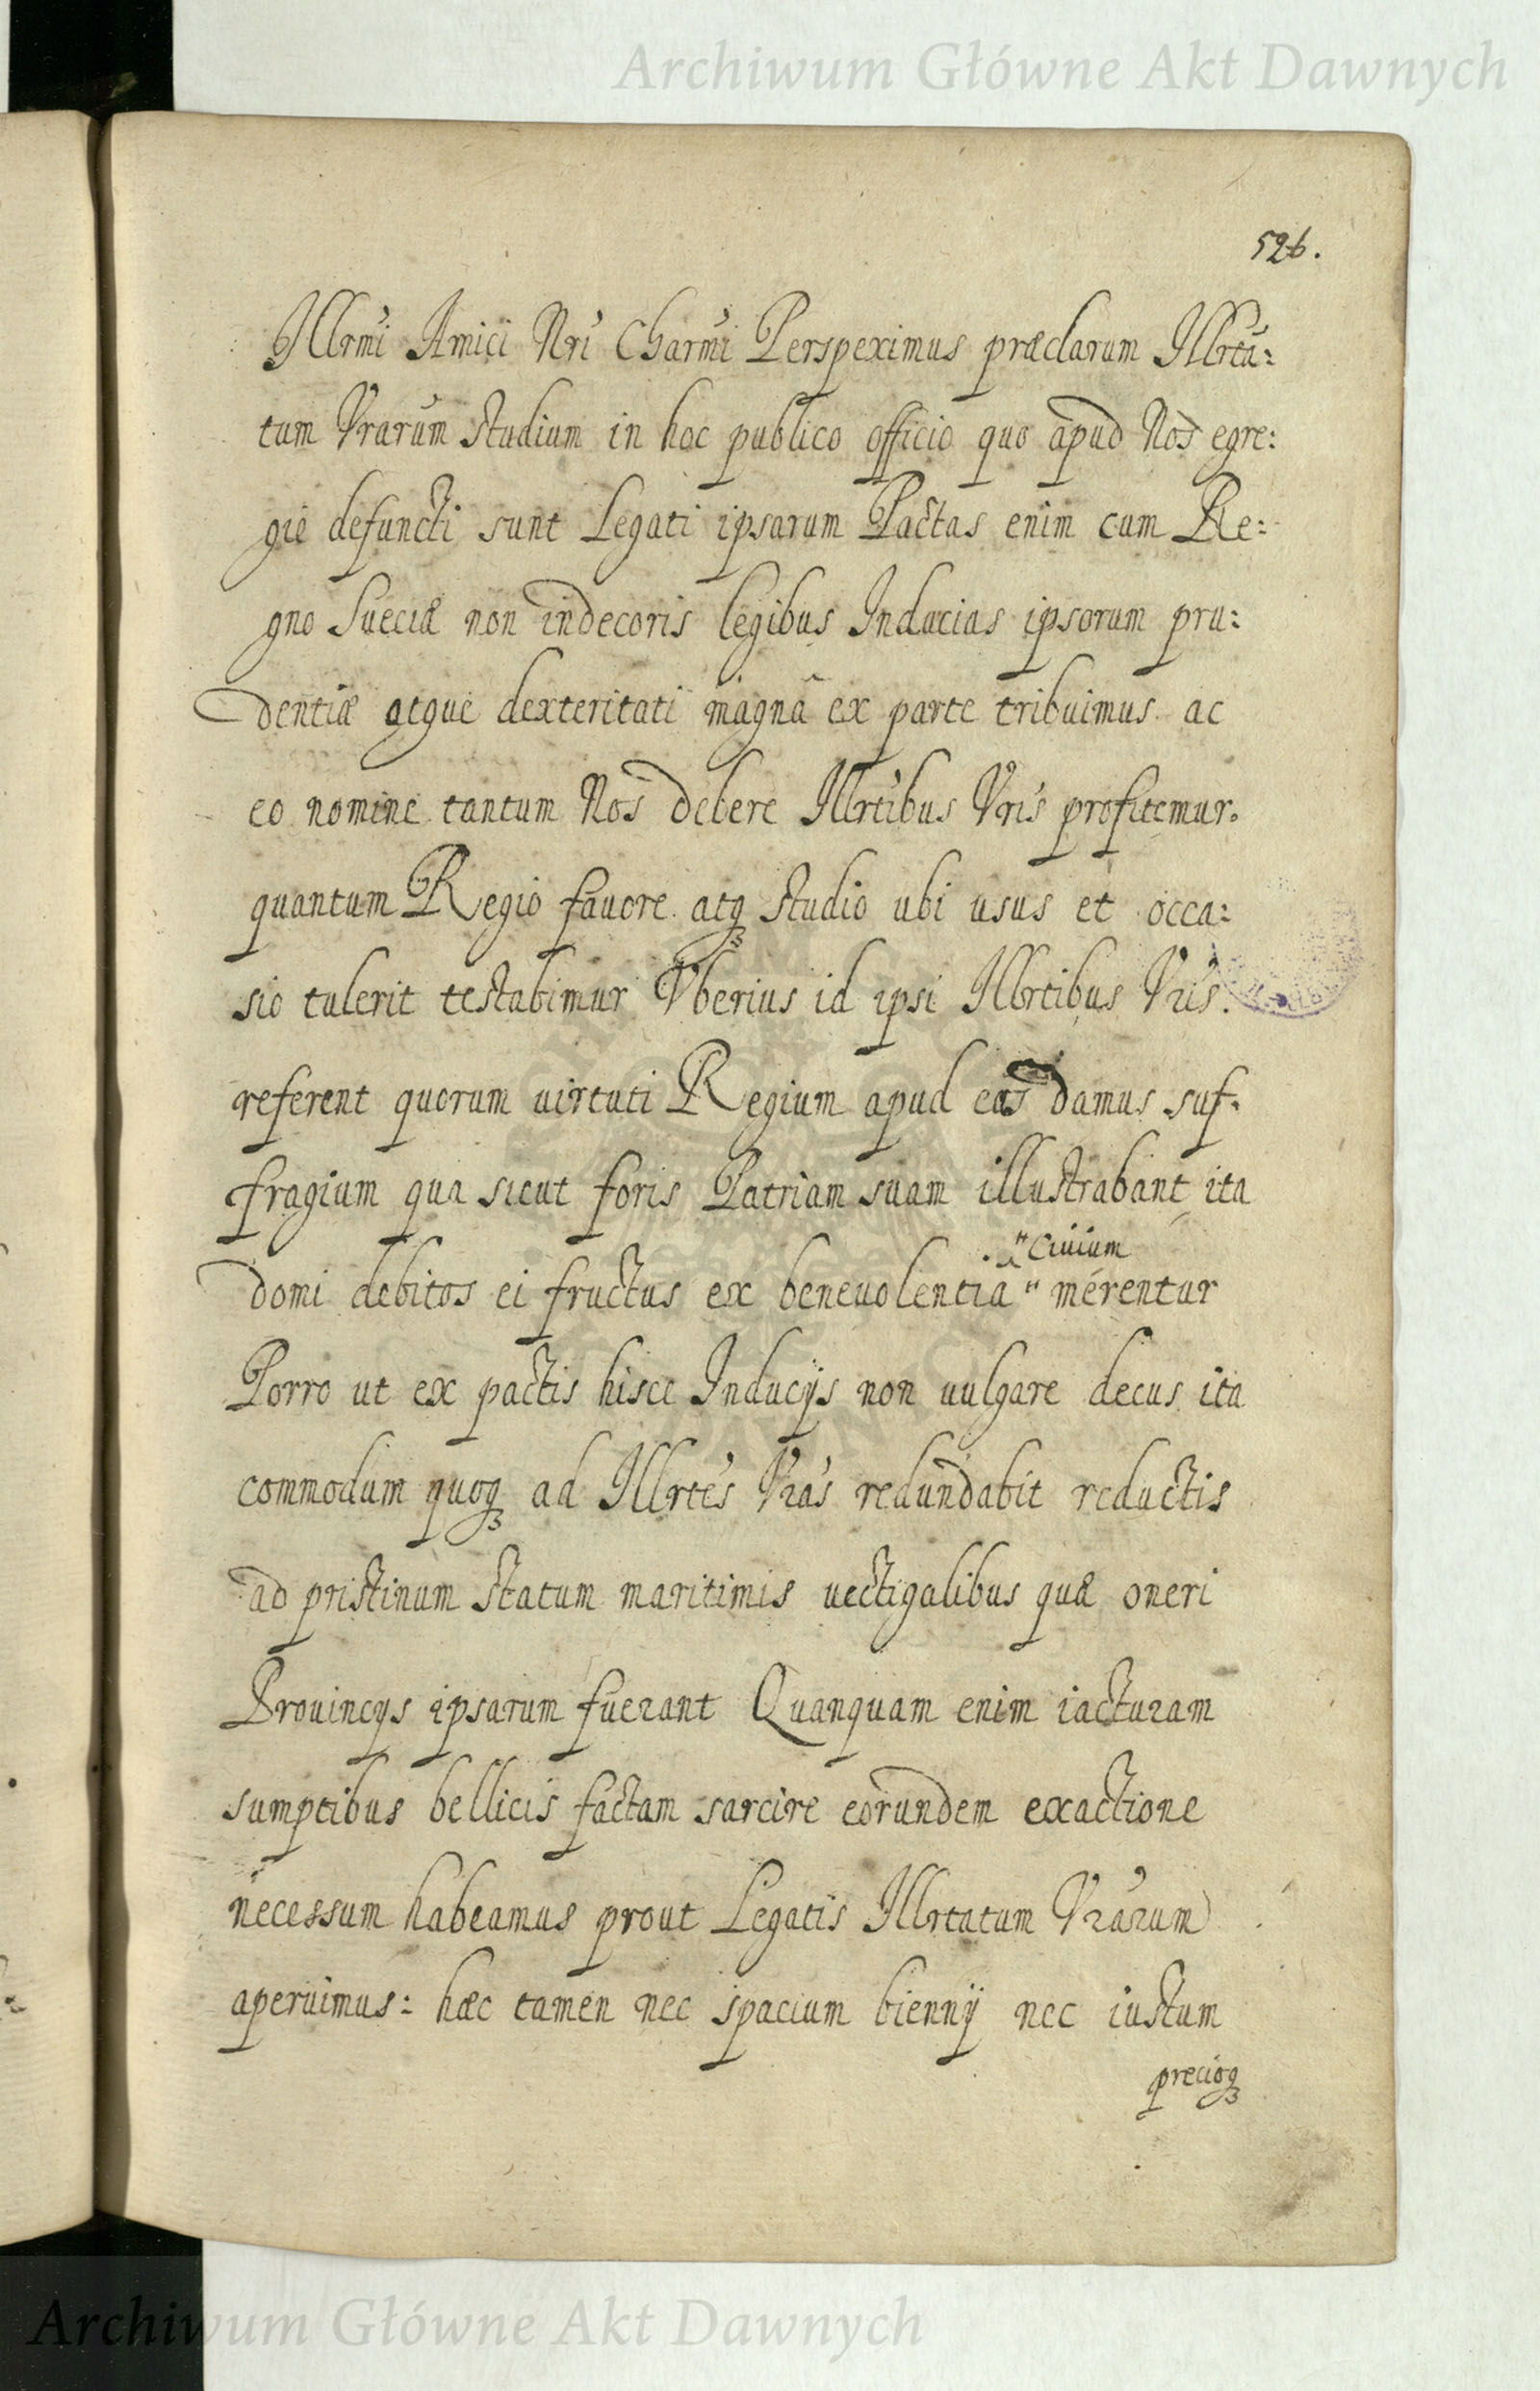 Archiwum Główne Akt Dawnych
526.
Illrmi Amici Nri Charmi Perspeximus præclarum Illrta:
tum Vrarum studium in hoc publico officio quo apud Nos egre:
gie defuncti sunt Legati ipsarum Pactas enim cum Re:
gno Sueciæ non indecoris legibus Inducias ipsorum pru:
dentiæ atque dexteritati magnâ ex parte tribuimus ac
eo nomine tantum Nos debere Illrtibus Vris profitemur.
quantum Regio fauore atq3 studio ubi usus et occa:
sio tulerit testabimur Vberius id ipsi Illrtibus Vris.
referent quorum uirtuti Regium apud eas damus suf:
fragium qua sicut foris Patriam suam illustrabant ita
" Ciuium
domi debitos ei fructus ex beneuolentia " merentur
Porro ut ex pactis hisce Inducijs non uulgare decus ita
commodum quoq3 ad Illrtes Vras redundabit reductis
ad pristinum statum maritimis uectigalibus quæ oneri
Prouincijs ipsarum fuerant Quanquam enim iacturam
sumptibus bellicis factam sarcire eorundem exactione
necessum habeamus prout Legatis Illrtatum Vrarum
aperuimus: hæc tamen nec spacium biennij nec iustum
precioq3
Archiwum Główne Akt Dawnych